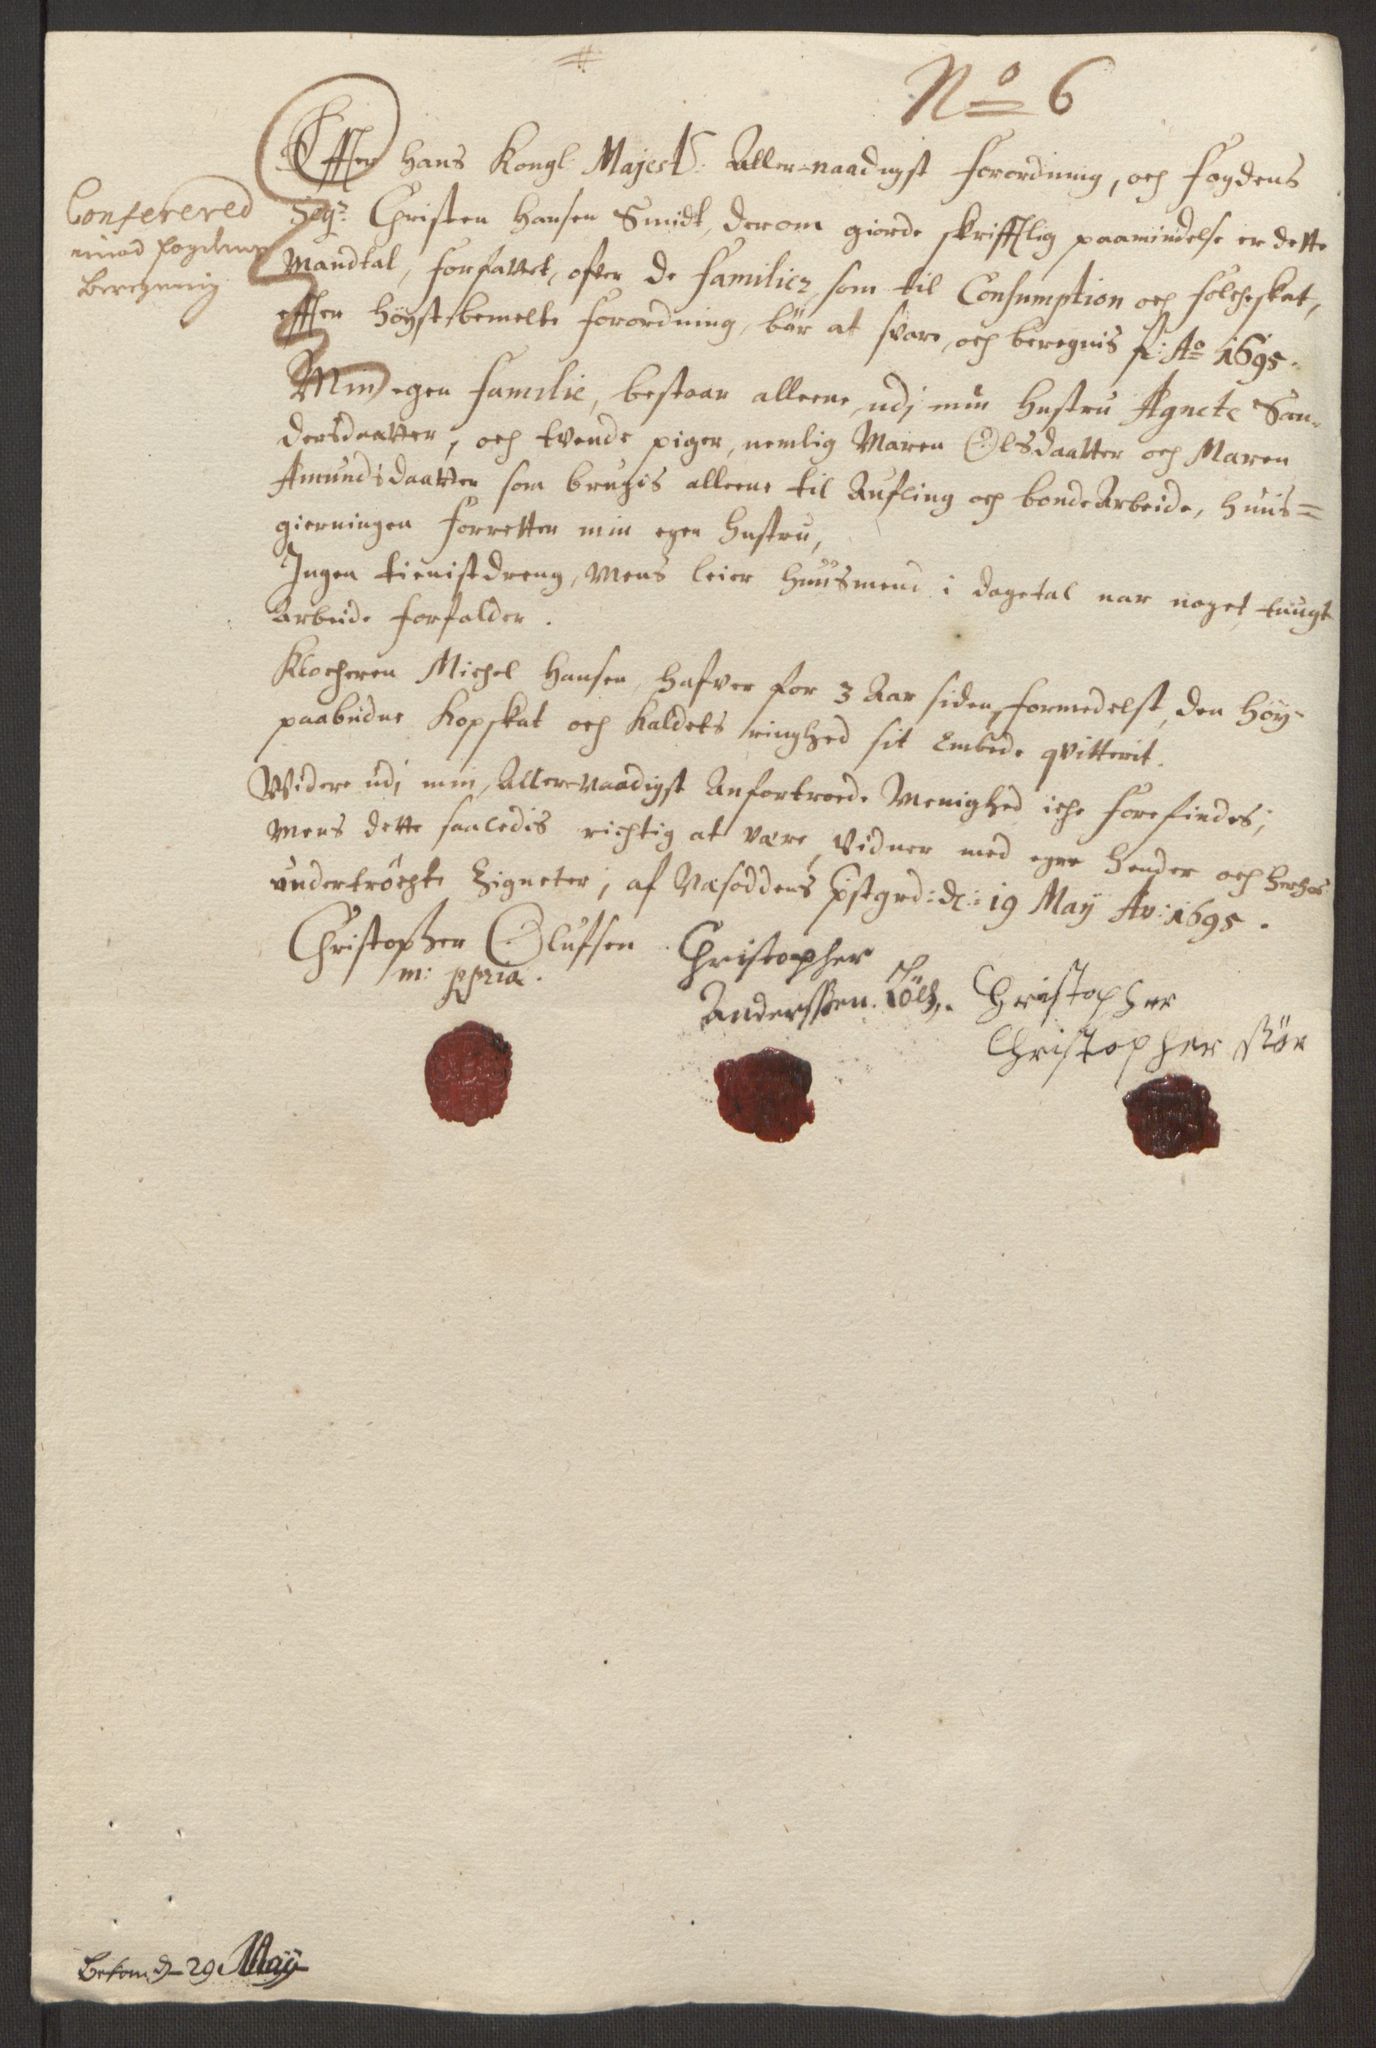 No 6
Effter Hans Kongl: Majest: Aller-naadigst Forordning, och Fogdens
Conferered
med fogdens
Beregning
Sigr Christen Hansen Smidt, derom giorde skrifftlig paamindelse er dette
Mandtal, forfattet, ofver de Familier som til Consumption och folcheskat,
efften Höystbemelte forordning, bör at svare, och beregnis pr: Ao 1695.
Min egen familie, bestaar alleene udj min Hustru Agnete San-
dersdaatter, och tvende piger, nemlig Maren Olsdaatter och Maren
Amundsdaatter som brugis alleene til Aufling och bonde Arbeide, Huus=
gierningen forretter min egen Hustru,
Ingen tienistdreng, Mens leier Huusmend i dagetal nar noget tungt
Arbeide forfalder.
Klocheren Michel Hansen, hafver for 3 Aar siden, formedelst den Höy-
paabudne Kopskat och Kaldets ringhed sit Embede qvitterit.
Widere udj min Aller-Naadigst Anfortroede Menighed iche forefindes;
Mens dette saaledis richtig at være, Vidner med egne hender och herhos
undertröchte Zigneter, af Næsoddens Pstgrd: d: 19 May Ao: 1695.
Christopher Olufsen
m: ppria.
Christopher
Anderssen.
Christopher
Christopher
Bekom d 29 May